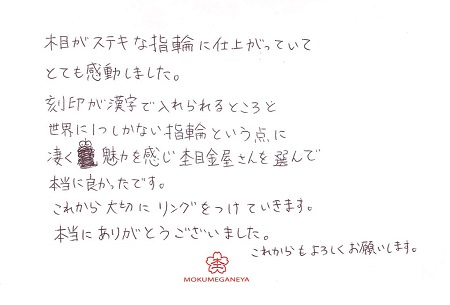 木目がステキな指輪に仕上がっていて
とても感動しました。
刻印が漢字で入れられるところと
世界に1つしかない指輪という点に
凄く魅力を感じ杢目金屋さんを選んで
本当に良かったです。
これから大切にリングをつけていきます。
本当にありがとうございました。
これからもよろしくお願いします。
MOKUMEGANEYA